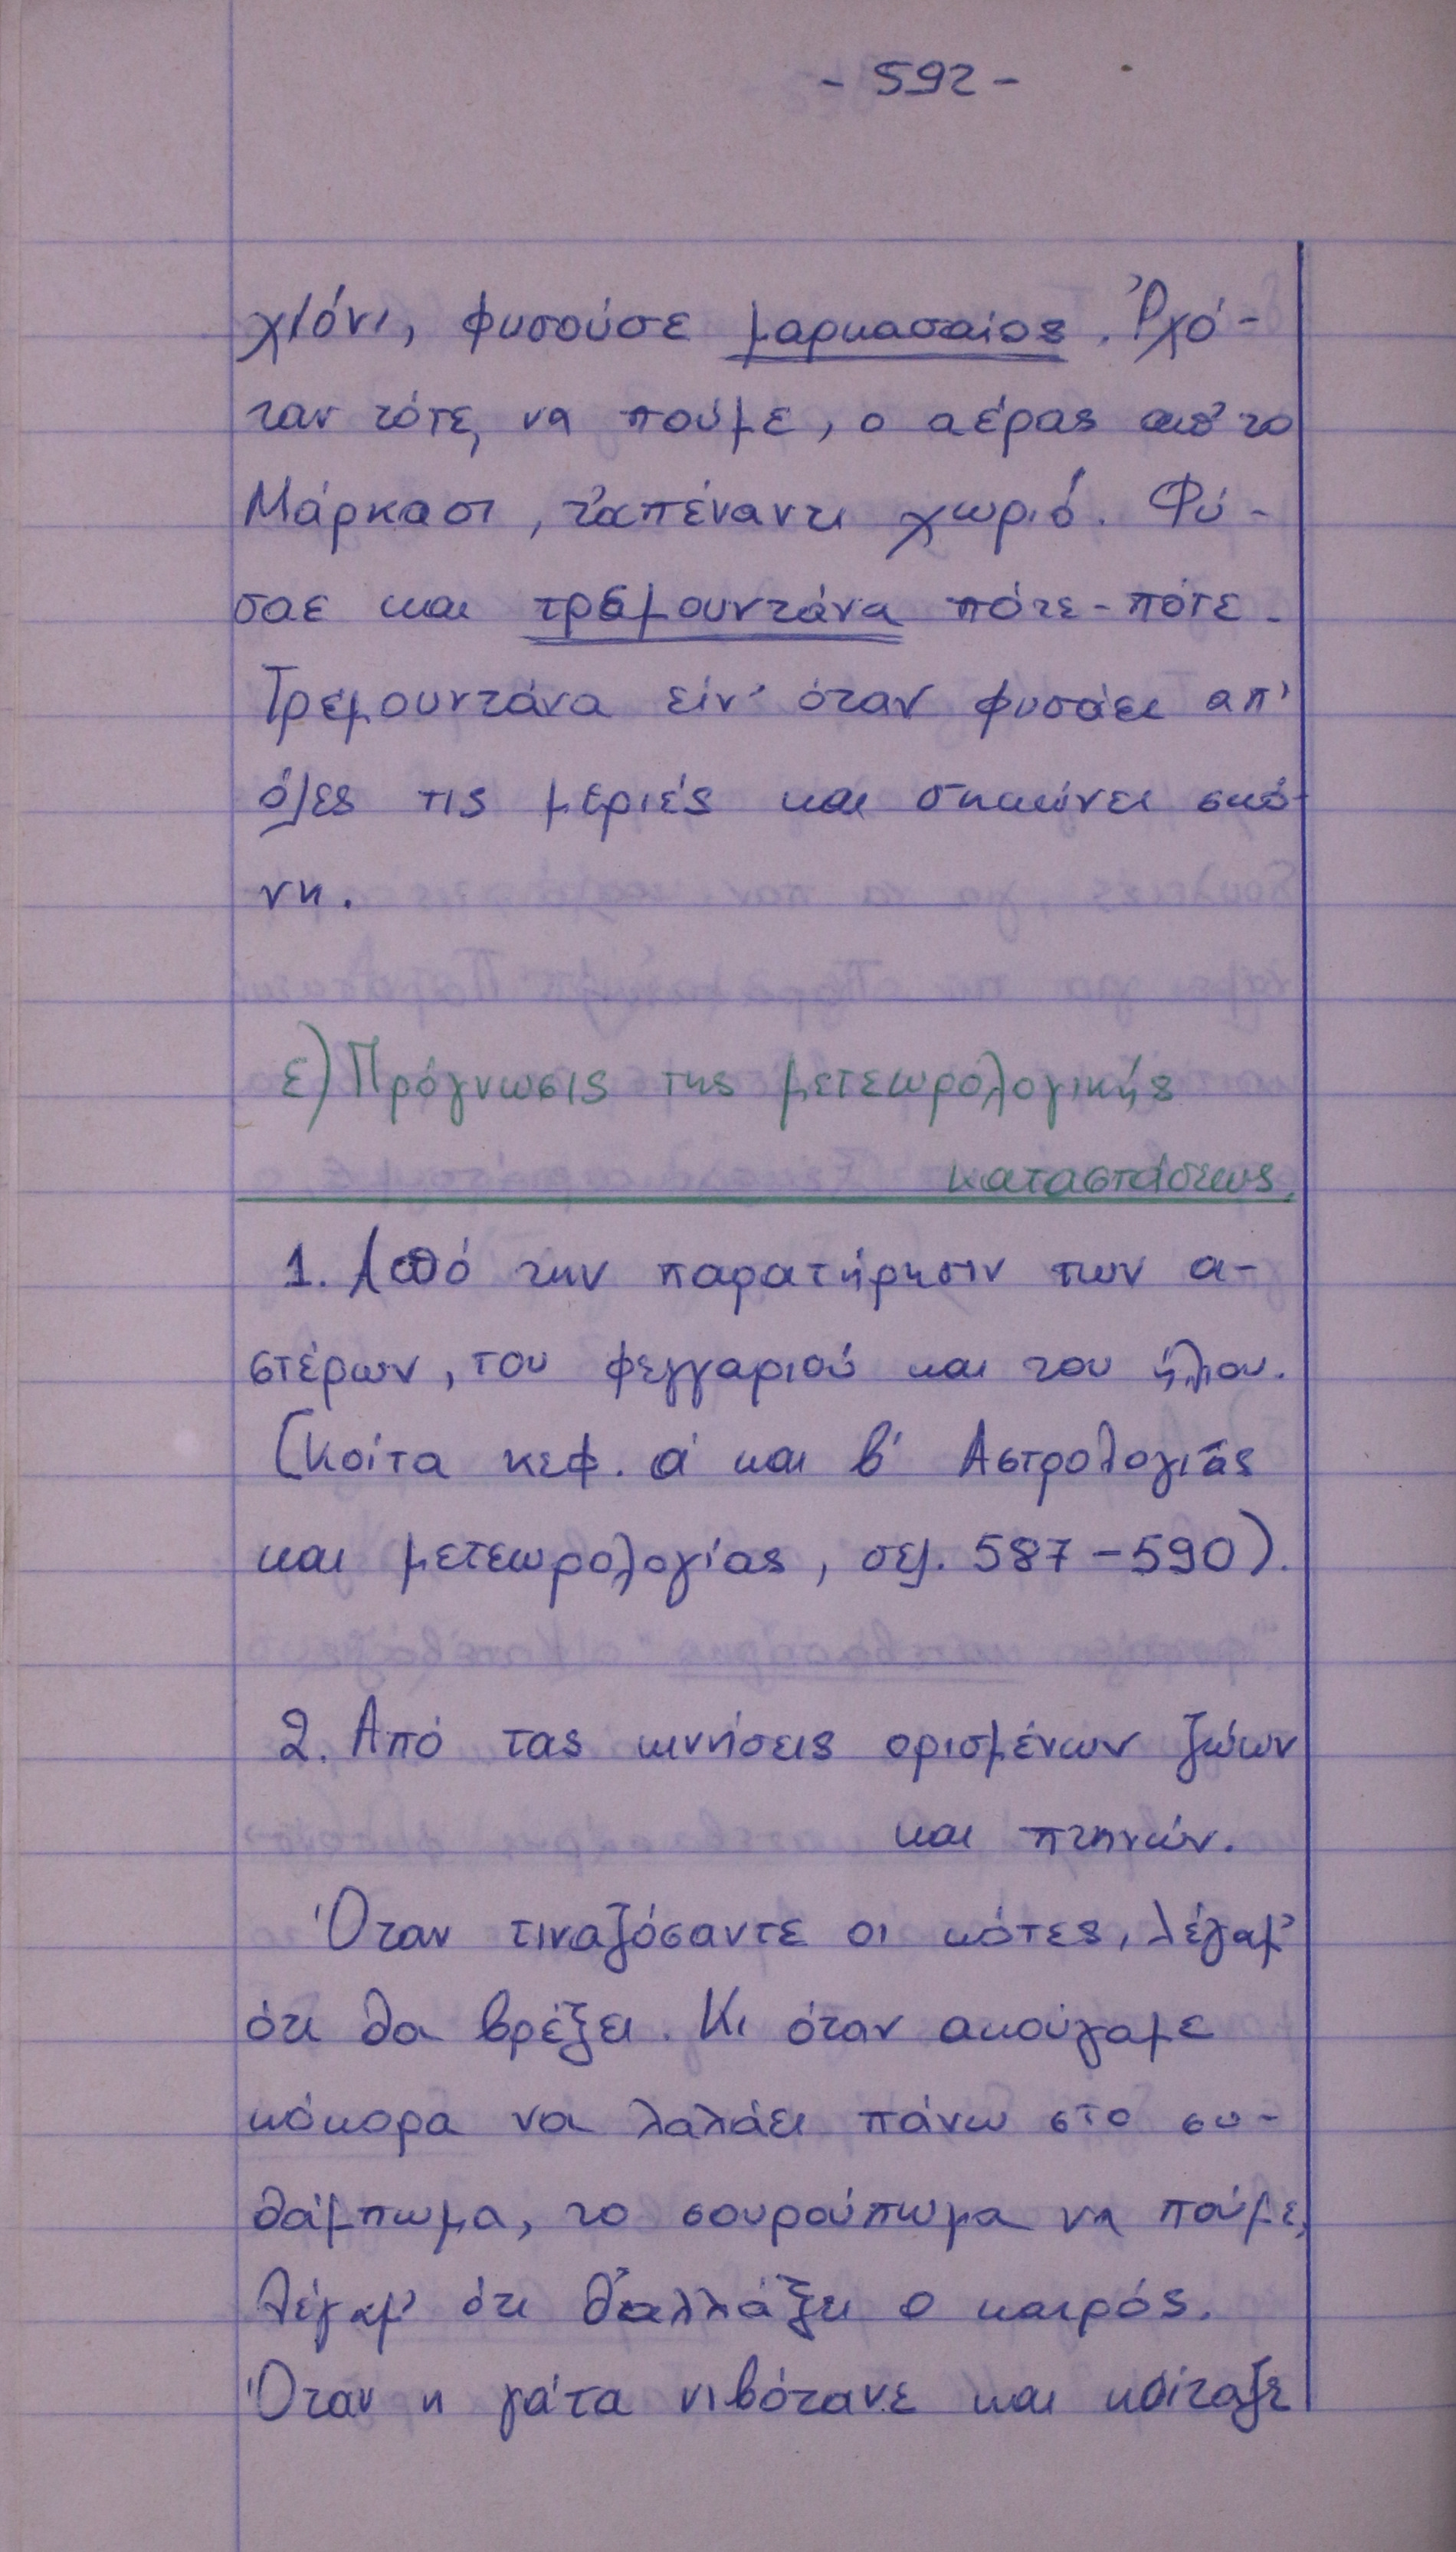 - 592 -
χιόνι, φυσούσε μαρκασαίος. Ἐρχό-
ταν τότε, να πούμε, ο αέρας απ' το
Μάρκασι, τ' απέναντι χωριό. Φύ-
σαε και τρεμουντάνα πότε-πότε.
Τρεμουντάνα είν' όταν φυσάει απ'
όλες τις μεριές και σηκώνει σκό-
νη.
ε) Πρόγνωσις της μετεωρολογικής
καταστάσεως.
1. Από την παρατήρησιν των α-
στέρων, του φεγγαριού και του ήλιου.
(Κοίτα κεφ. α' και β' Αστρολογίας
και μετεωρολογίας, σελ. 587-590).
2. Από τας κινήσεις ορισμένων ζώων
και πτηνών.
Όταν τιναζόσαντε οι κότες, λέγαμ'
ότι θα βρέξει. Κι όταν ακούγαμε
κόκορα να λαλάει πάνω στο σου-
θάμπωμα, το σουρούπωμα να πούμε,
λέγαμ' ότι θ' αλλάξει ο καιρός.
Όταν η γάτα νιβότανε και κοίταζε